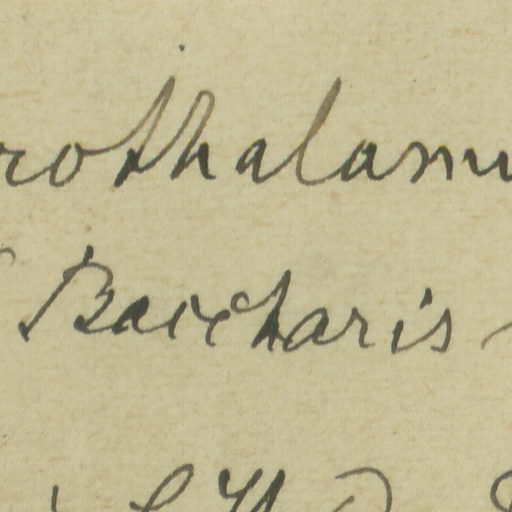 rothalamu
Baccharis